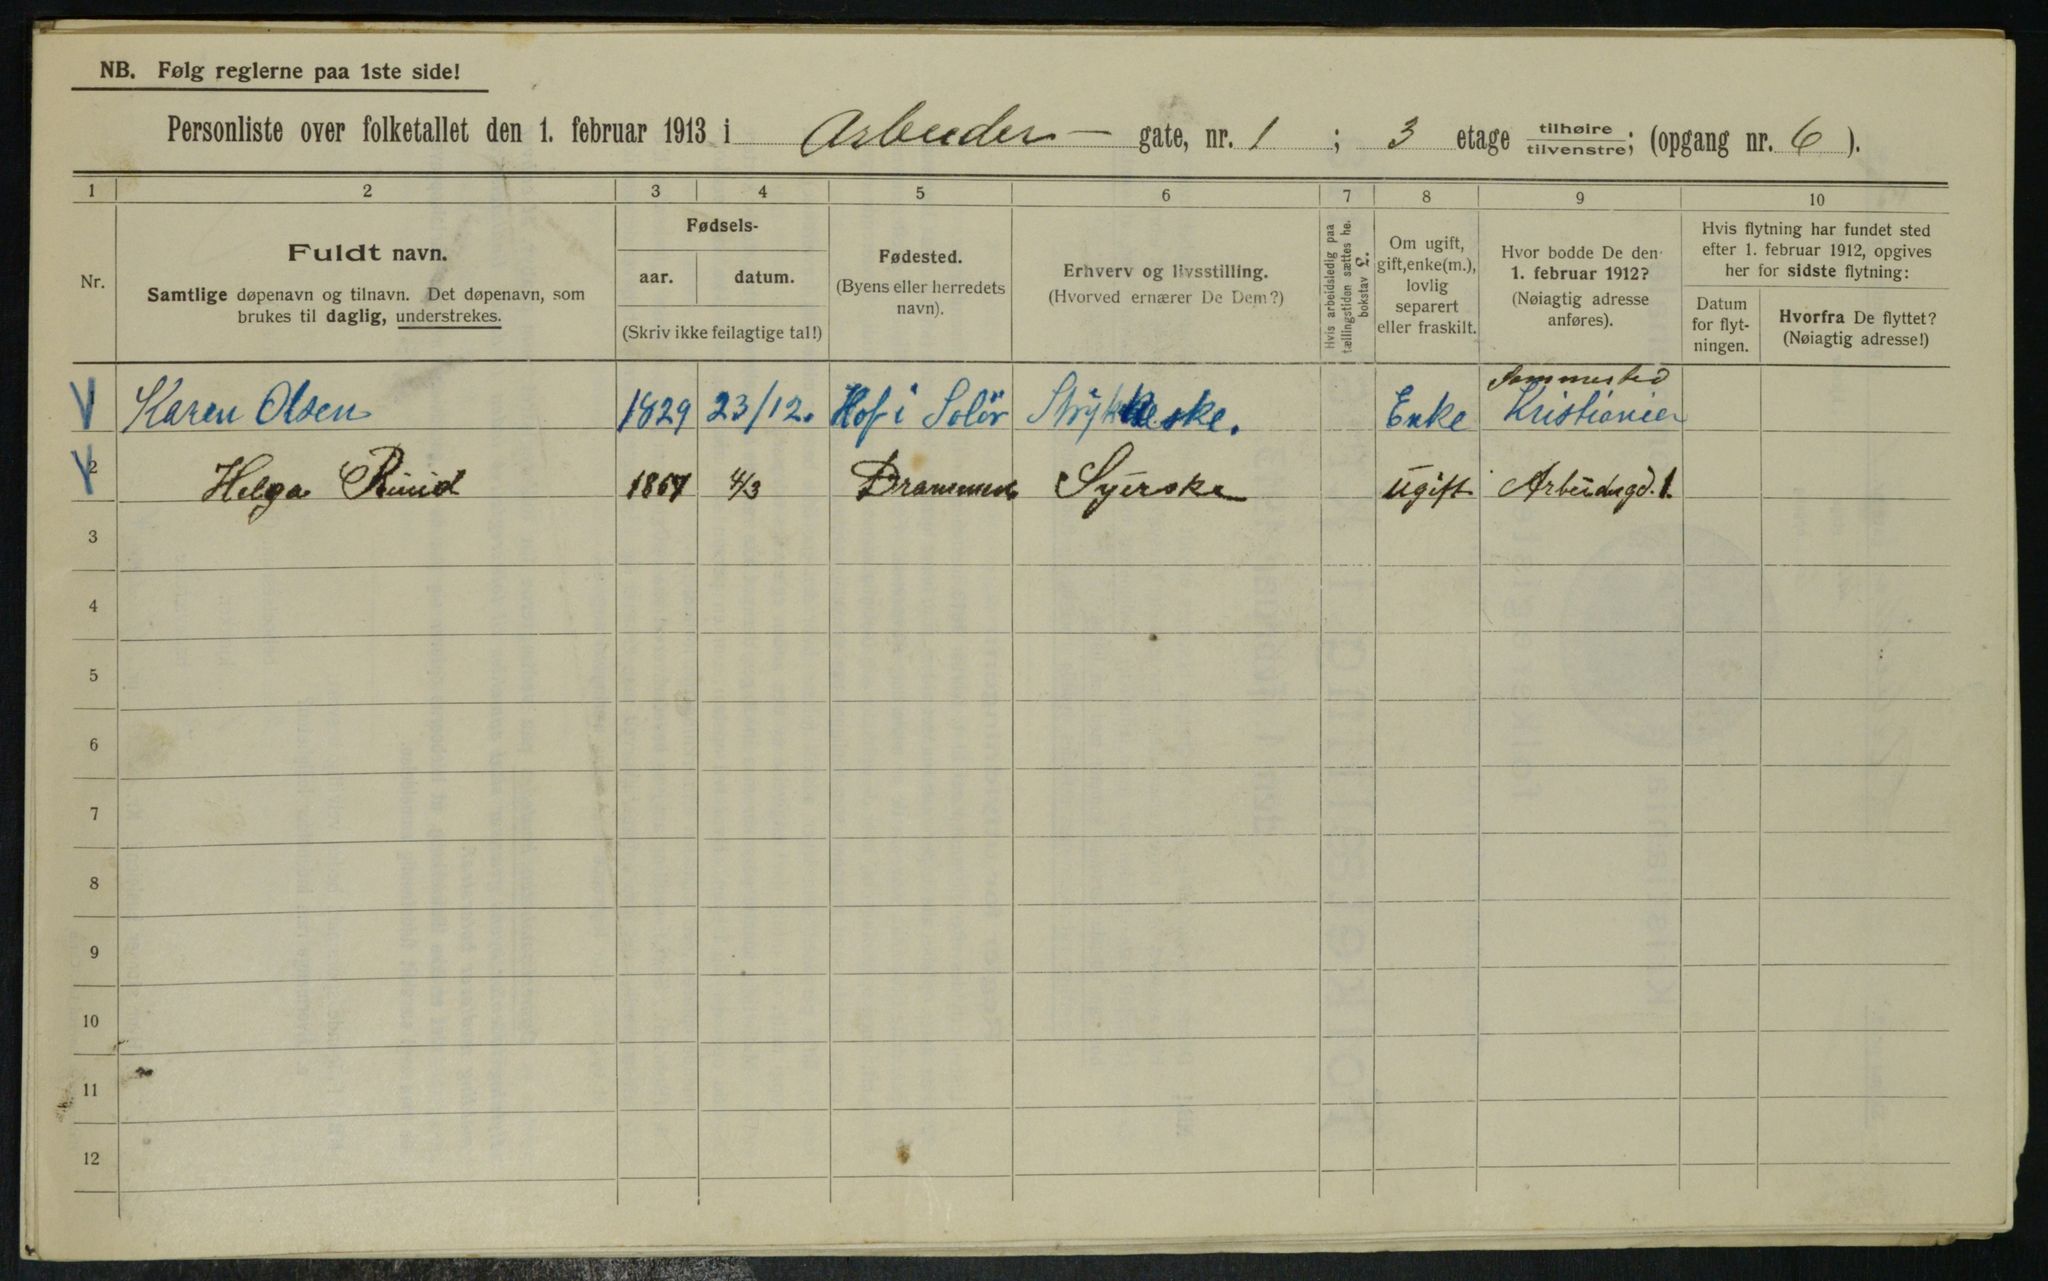 NB. Følg reglerne paa 1ste side!
Personliste over folketallet den 1. februar 1913 i Arbeider- gate, nr. 1 ; 3 etage tilhøire tilvenstre; (opgang nr. 6 ).
1 2 3 4 5 6 7 8 9 10
Nr.
Fuldt navn.
Samtlige døpenavn og tilnavn. Det døpenavn, som
brukes til daglig, understrekes.
Fødsels-
aar. datum.
(Skriv ikke feilagtige tal!)
Fødested.
(Byens eller herredets
navn).
Erhverv og livsstilling.
(Hvorved ernærer De Dem?)
Hvis arbeidsledig paa
tællingstiden sættes he.
bokstav L.
Om ugift,
gift, enke(m.),
lovlig
separert
eller fraskilt.
Hvor bodde De den
1. februar 1912?
(Nøiagtig adresse
anføres).
Hvis flytning har fundet sted
efter 1. februar 1912, opgives
her for sidste flytning:
Datum
for flyt-
ningen.
Hvorfra De flyttet?
(Nøiagtig adresse!)
Sammested
Karen Olsen 1829 23/12. Hof i Solör Enke Kristiania
2 Helga Ruud 4/3 Drammen Syerske ugift 1.
3
4
5
6
7
8
9
10
11
12